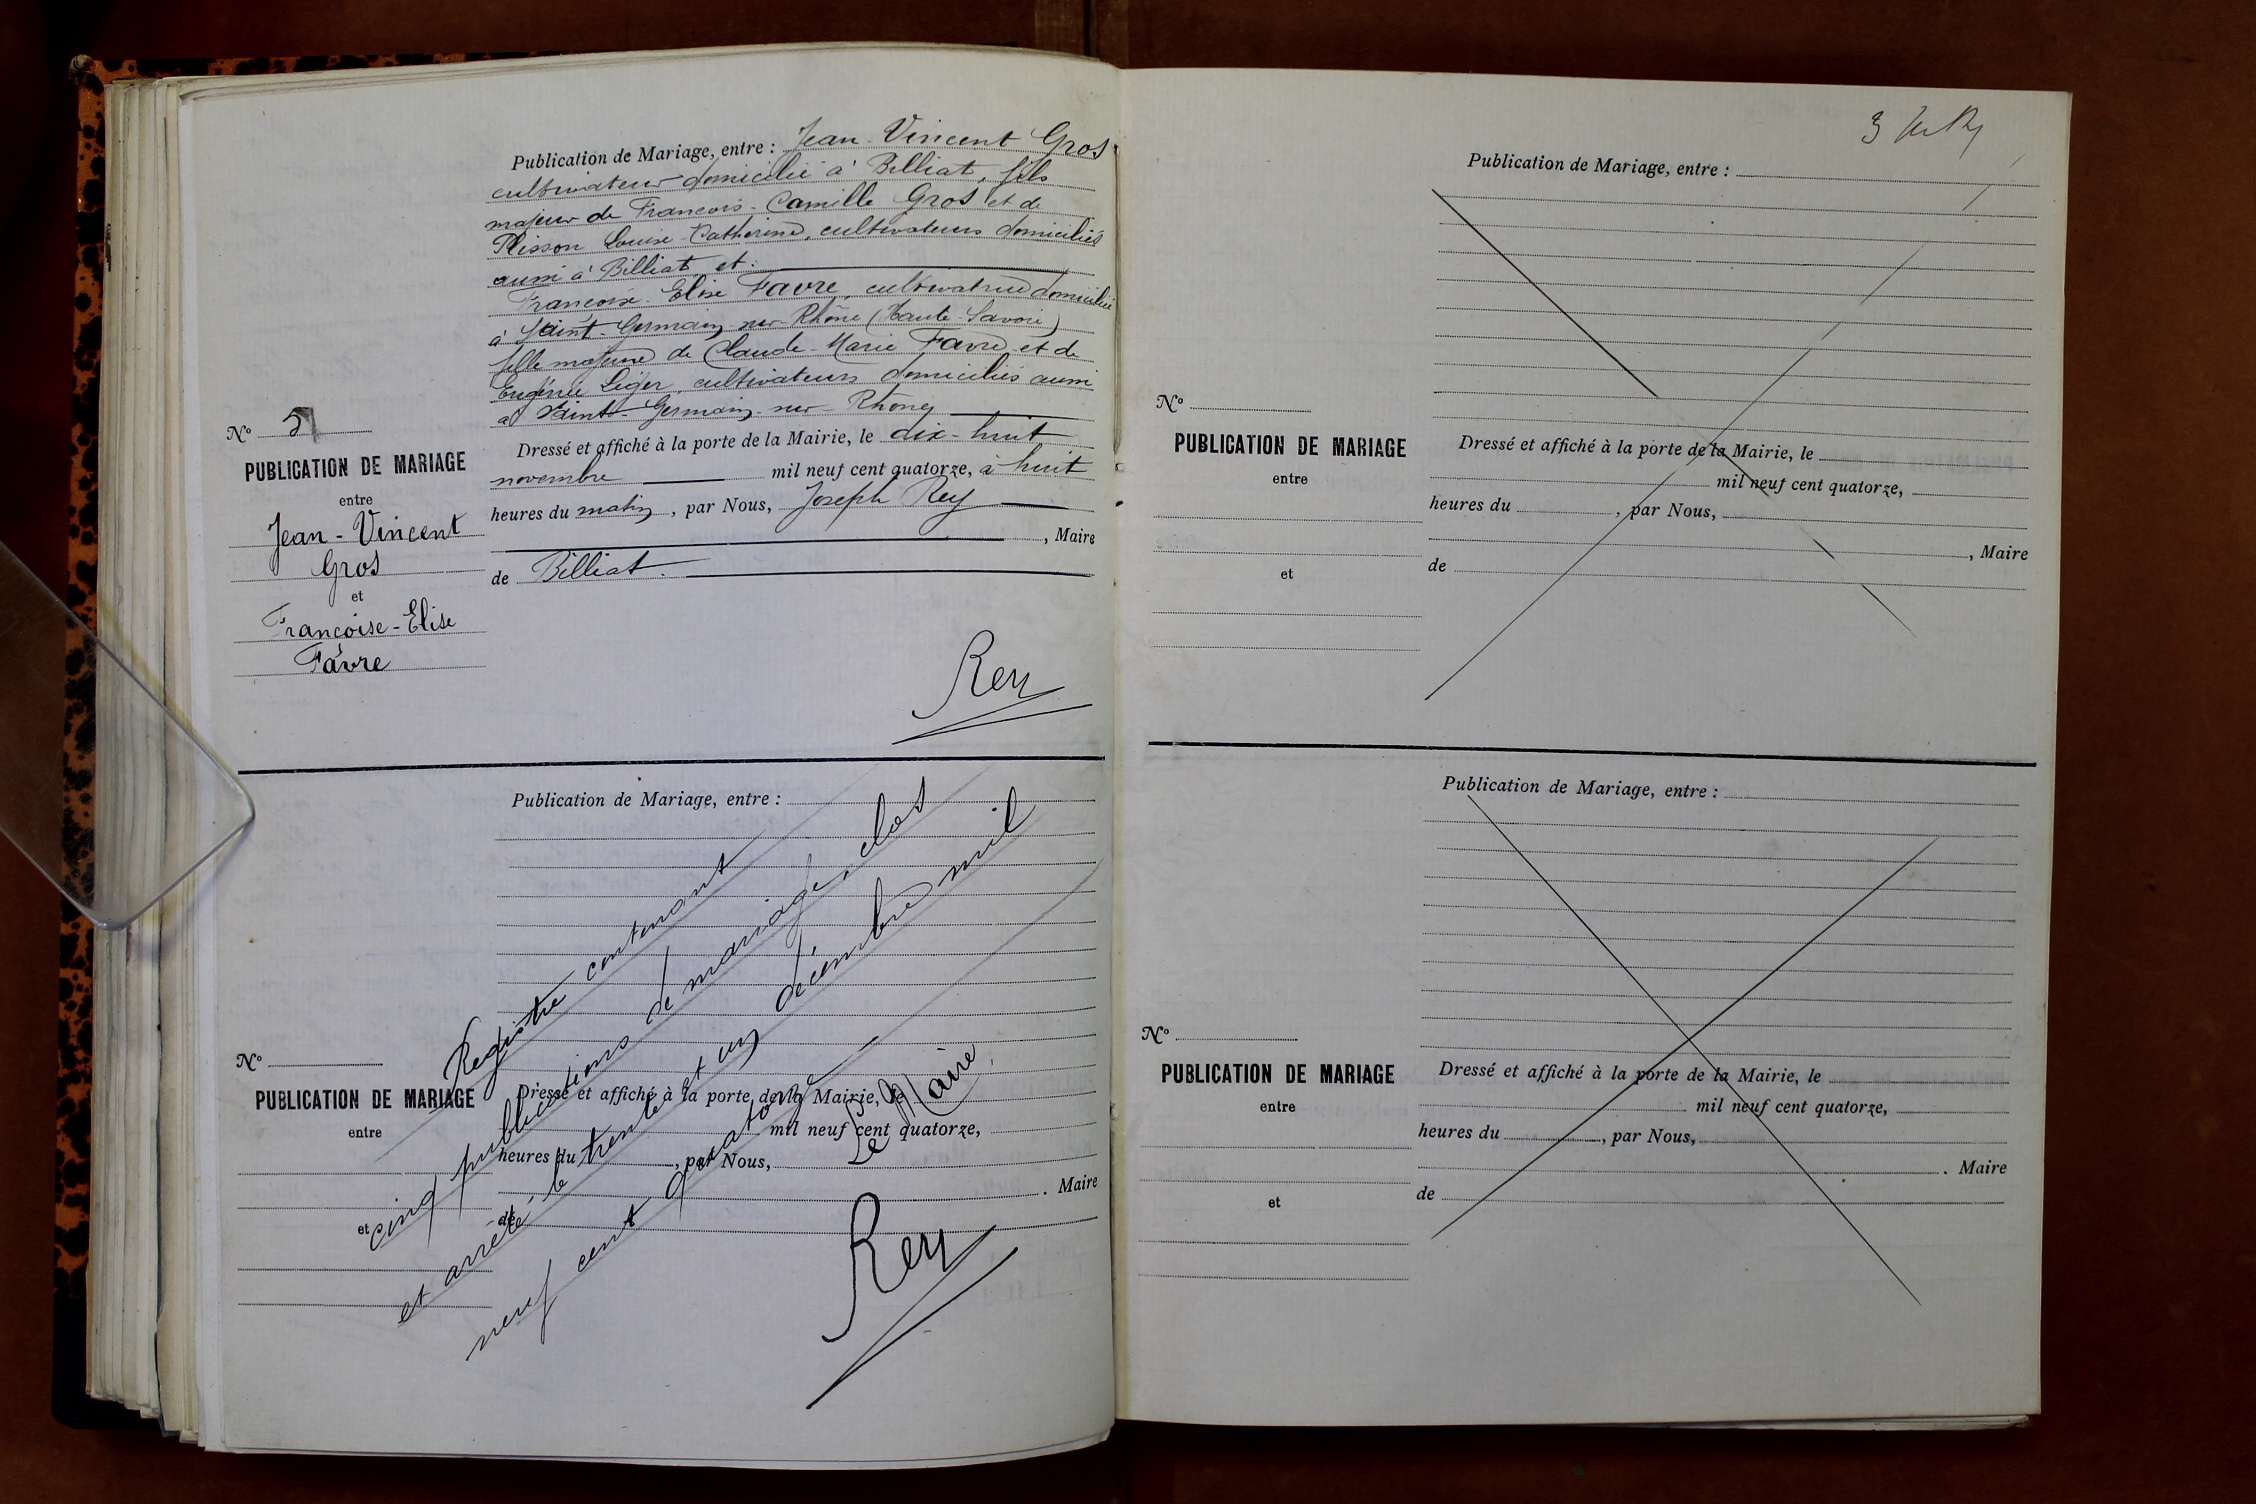 Publication de Mariage, entre : Jean-Vincent Gros
cultivateur domicilié à Billiat, fils
majeur de François-Camille Gros et de
Plisson Louise-Catherine, cultivateurs domiciliés
aussi à Billiat et :
Françoise-Elise Favre, cultivatrice domiciliée
à Saint-Germain-sur-Rhône (Haute-Savoie)
fille majeure de Claude-Marie Favre et de
Eugénie Léger, cultivateurs domiciliés aussi
à Saint-Germain-sur-Rhône
Dressé et affiché à la porte de la Mairie, le dix-huit
novembre mil neuf cent quatorze, à huit
heures du matin, par Nous, Joseph Rey
, Maire
de Billiat.
Rey
Nº 5
PUBLICATION DE MARIAGE
entre
Jean-Vincent
Gros
et
Françoise-Elise
Favre
Publication de Mariage, entre :
Nº
PUBLICATION DE MARIAGE
entre
et
Dressé et affiché à la porte de la Mairie, le
mil neuf cent quatorze,
heures du , par Nous,
. Maire
de
Registre contenant
cinq publications de mariage, clos
et arrêté le trente et un décembre mil
neuf cent quatorze
Le Maire,
Rey
3
Publication de Mariage, entre :
Nº
PUBLICATION DE MARIAGE
entre
et
Dressé et affiché à la porte de la Mairie, le
mil neuf cent quatorze,
heures du , par Nous,
, Maire
de
Publication de Mariage, entre :
Nº
PUBLICATION DE MARIAGE
entre
et
Dressé et affiché à la porte de la Mairie, le
mil neuf cent quatorze,
heures du , par Nous,
. Maire
de